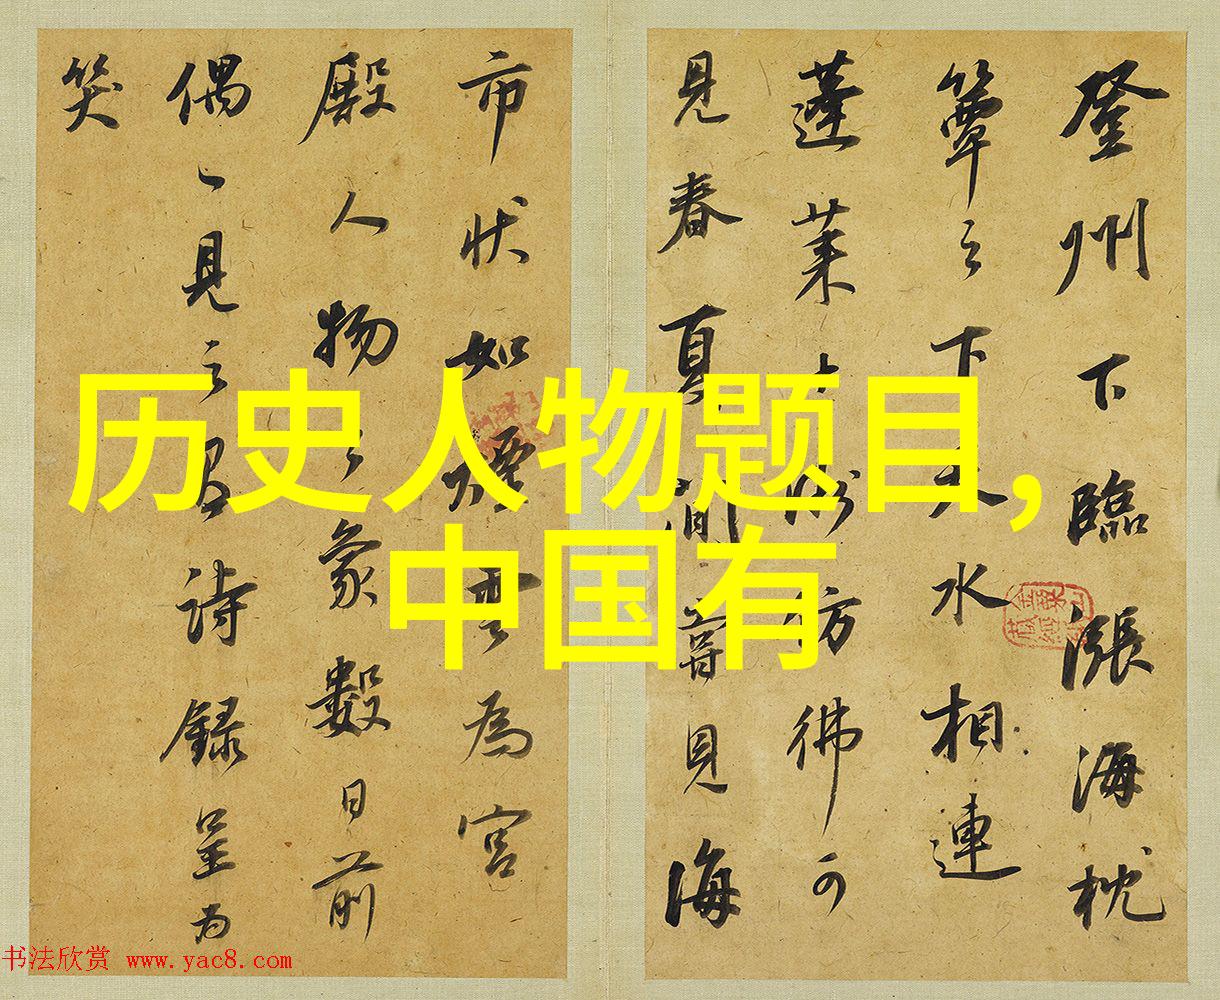 登州下臨漲海枕
簟之下天水相連
蓬萊洲彷彿可
見春夏間嘗見海
市狀如煙雲為宮
殿人物之象數日前
偶一見之有詩録呈為
笑
历史人物题目,
中国有
书法欣赏 www.yac8.com